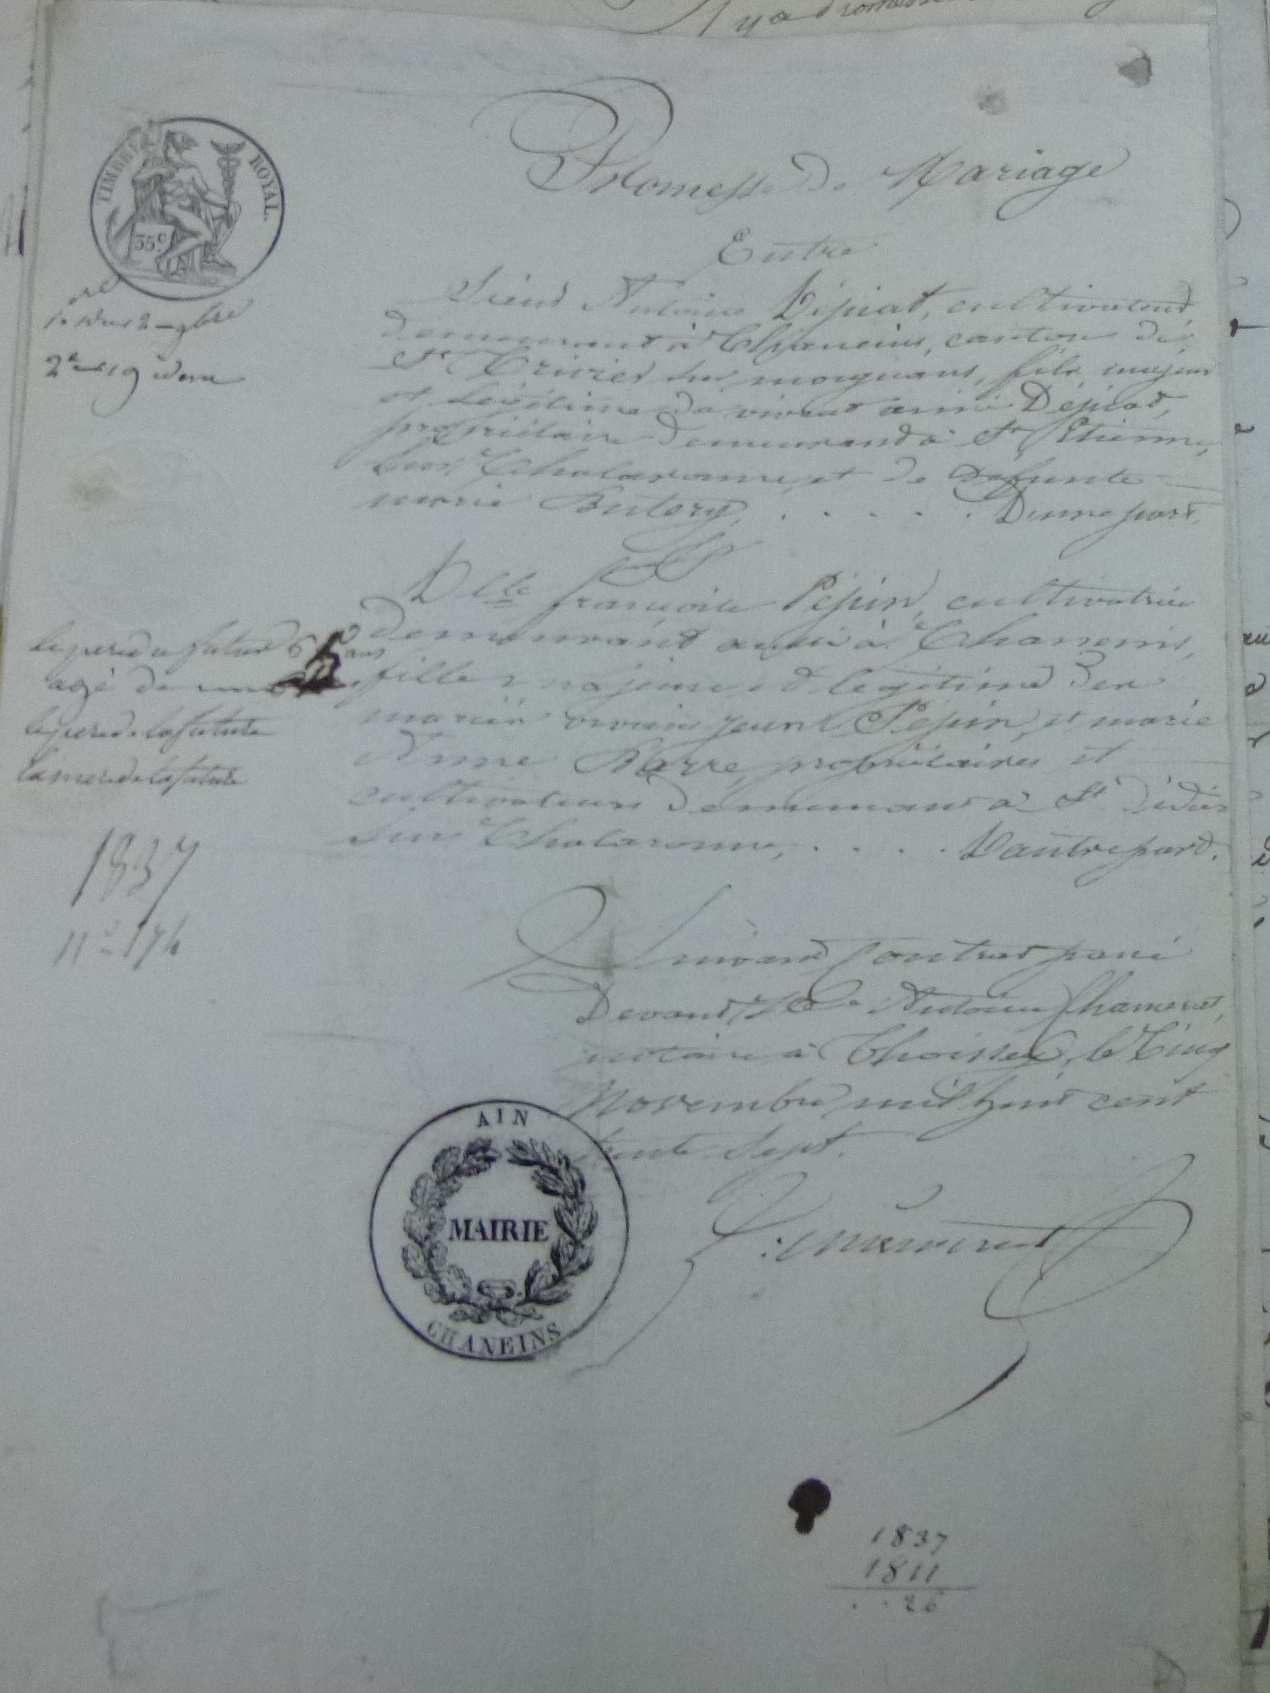 TIMBRE ROYAL.
35 c
2e 19 idem
Promesse de Mariage
Entre
Sieur Antoine Dépiat, cultivateur
demeurant à Chaneins, canton de
St Trivier sur moignans, fils majeur
et légitime de vivant aimé Dépiat,
propriétaire demeurant à St Etienne
Sur Chalaronne, et de defunte
marie Butery, . . . . . D'une part,
Et
Dlle françoise Pépin, cultivatrice
demeurant aussi à Chaneins,
fille majeure et légitime des
mariés vivans jean Pépin, et marie
Anne Barre, propriétaires et
cultivateurs demeurant à St didier
Sur Chalaronne, . . . . D'autre part.
le pere du futur 65 ans
agé de
le pere de la future
la mere de la future
1837
no 174
Suivant Contrat passé
Devant Me Antoine Chamerat,
notaire à Thoissey, le Cinq
Novembre mil huit cent
trente Sept.
AIN
MAIRIE
CHANEINS
1837
1811
. . 26